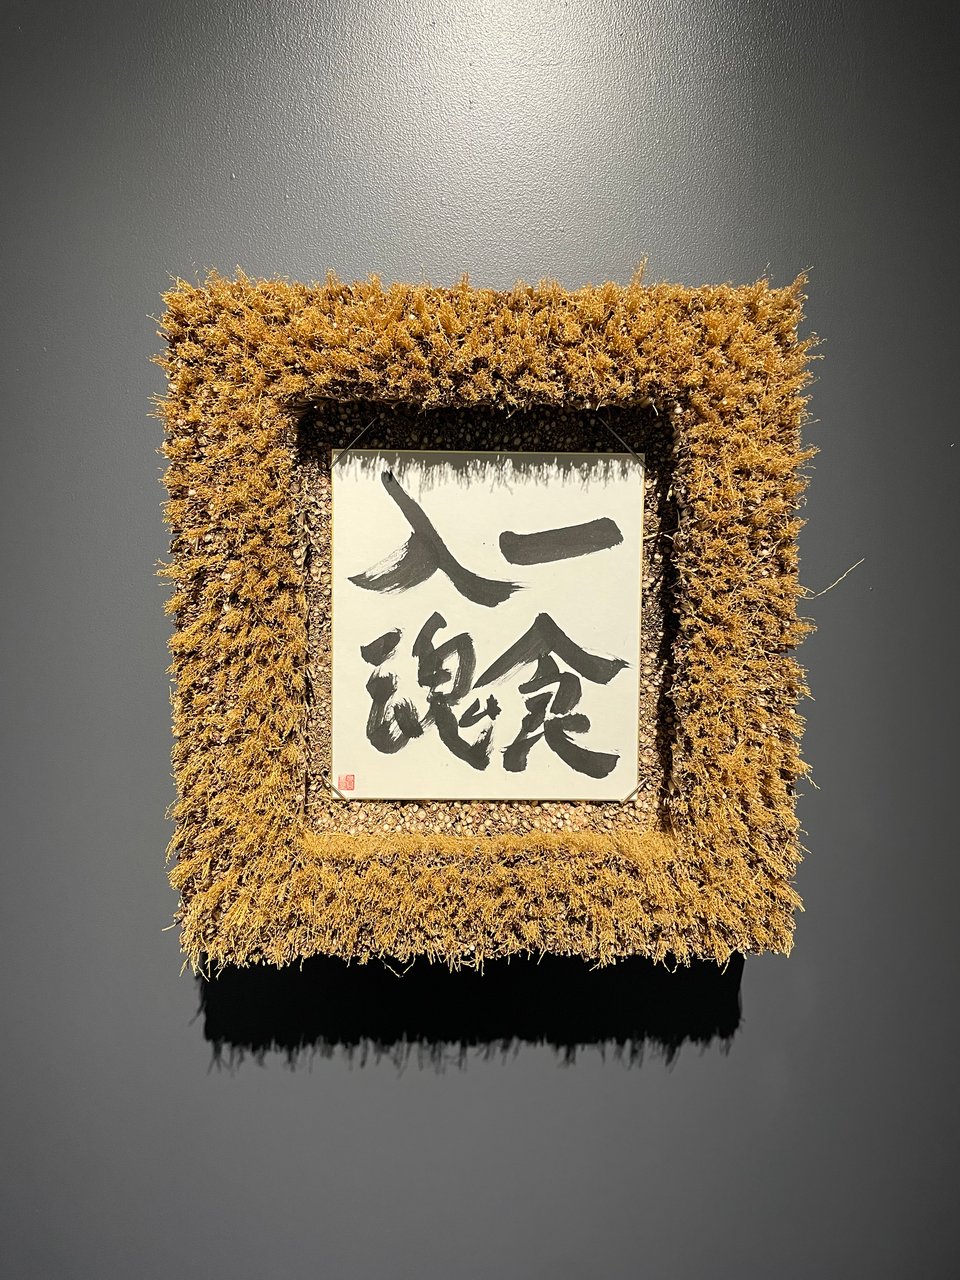 一食
入魂